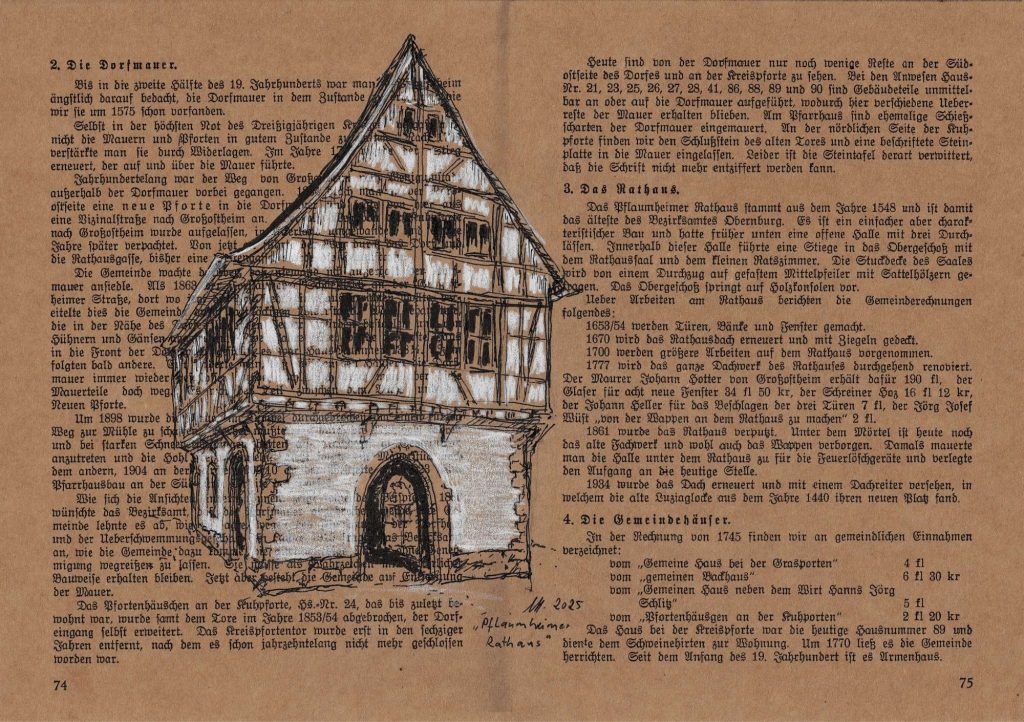 2. Die Dorfmauer.
Bis in die zweite Hälfte des 19. Jahrhunderts war man
ängstlich darauf bedacht, die Dorfmauer in dem Zustande
wir sie um 1575 schon vorfanden.
Selbst in der höchsten Not des Dreißigjährigen
nicht die Mauern und Pforten in gutem Zustande
verstärkte man sie durch Widerlagen. Im Jahre
erneuert, der auf und über die Mauer führte.
Jahrhundertelang war der Weg von
außerhalb der Dorfmauer vorbei gegangen.
ostseite eine neue Pforte in die
eine Vizinalstraße nach Großostheim an.
nach Großostheim wurde aufgelassen,
Jahre später verpachtet. Von jetzt
die Rathausgasse, bisher eine
Die Gemeinde wachte
mauer ansiedle. Als 1863
heimer Straße, dort wo
eitelte dies die Gemeinde
die in der Nähe des
Hühnern und Gänsen
in die Front der
folgten bald andere.
mauer immer wieder
Mauerteile doch
Neuen Pforte.
Um 1898 wurde
Weg zur Mühle zu
und bei starken
anzutreten und die
dem andern, 1904 an der
Pfarrhausbau an der
Wie sich die Ansichten
wünschte das Bezirksamt,
meinde lehnte es ab,
und der Ueberschwemmungsgefahr
an, wie die Gemeinde dazu
migung wegreißen zu lassen.
Bauweise erhalten bleiben. Jetzt aber besteht die Gemeinde auf
der Mauer.
Das Pfortenhäuschen an der Kuhpforte, Hs.-Nr. 24, das bis zuletzt be-
wohnt war, wurde samt dem Tore im Jahre 1853/54 abgebrochen, der Dorf-
eingang selbst erweitert. Das Kreispfortentor wurde erst in den sechziger
Jahren entfernt, nach dem es schon jahrzehntelang nicht mehr geschlossen
worden war.
74
2025
"Pflaumheimer
Rathaus"
Heute sind von der Dorfmauer nur noch wenige Reste an der Süd-
ostseite des Dorfes und an der Kreispforte zu sehen. Bei den Anwesen Haus-
Nr. 21, 23, 25, 26, 27, 28, 41, 86, 88, 89 und 90 sind Gebäudeteile unmittel-
bar an oder auf die Dorfmauer aufgeführt, wodurch hier verschiedene Ueber-
reste der Mauer erhalten blieben. Am Pfarrhaus sind ehemalige Schieß-
scharten der Dorfmauer eingemauert. An der nördlichen Seite der Kuh-
pforte finden wir den Schlußstein des alten Tores und eine beschriftete Stein-
platte in die Mauer eingelassen. Leider ist die Steintafel derart verwittert,
daß die Schrift nicht mehr entziffert werden kann.
3. Das Rathaus.
Das Pflaumheimer Rathaus stammt aus dem Jahre 1548 und ist damit
das älteste des Bezirksamtes Obernburg. Es ist ein einfacher aber charak-
teristischer Bau und hatte früher unten eine offene Halle mit drei Durch-
lässen. Innerhalb dieser Halle führte eine Stiege in das Obergeschoß mit
dem Rathaussaal und dem kleinen Ratszimmer. Die Stuckdecke des Saales
wird von einem Durchzug auf gefastem Mittelpfeiler mit Sattelhölzern ge-
tragen. Das Obergeschoß springt auf Holzkonsolen vor.
Ueber Arbeiten am Rathaus berichten die Gemeinderechnungen
folgendes:
1653/54 werden Türen, Bänke und Fenster gemacht.
1670 wird das Rathausdach erneuert und mit Ziegeln gedeckt.
1700 werden größere Arbeiten auf dem Rathaus vorgenommen.
1777 wird das ganze Dachwerk des Rathauses durchgehend renoviert.
Der Maurer Johann Hotter von Großostheim erhält dafür 190 fl, der
Glaser für acht neue Fenster 34 fl 50 kr, der Schreiner Hoz 16 fl 12 kr,
der Johann Heller für das Beschlagen der drei Türen 7 fl, der Jörg Josef
Wüst „von der Wappen an dem Rathaus zu machen" 2 fl.
1861 wurde das Rathaus verputzt. Unter dem Mörtel ist heute noch
das alte Fachwerk und wohl auch das Wappen verborgen. Damals mauerte
man die Halle unter dem Rathaus zu für die Feuerlöschgeräte und verlegte
den Aufgang an die heutige Stelle.
1934 wurde das Dach erneuert und mit einem Dachreiter versehen, in
welchem die alte Luziaglocke aus dem Jahre 1440 ihren neuen Platz fand.
4. Die Gemeindehäuser.
In der Rechnung von 1745 finden wir an gemeindlichen Einnahmen
verzeichnet:
vom „Gemeine Haus bei der Grasporten" 4 fl
vom „gemeinen Backhaus" 6 fl 30 kr
vom „Gemeinen Haus neben dem Wirt Hanns Jörg
Schlitz" 5 fl
vom „Pfortenhäusgen an der Kuhporten" 2 fl 20 kr
Das Haus bei der Kreispforte war die heutige Hausnummer 89 und
diente dem Schweinehirten zur Wohnung. Um 1770 ließ es die Gemeinde
herrichten. Seit dem Anfang des 19. Jahrhundert ist es Armenhaus.
75